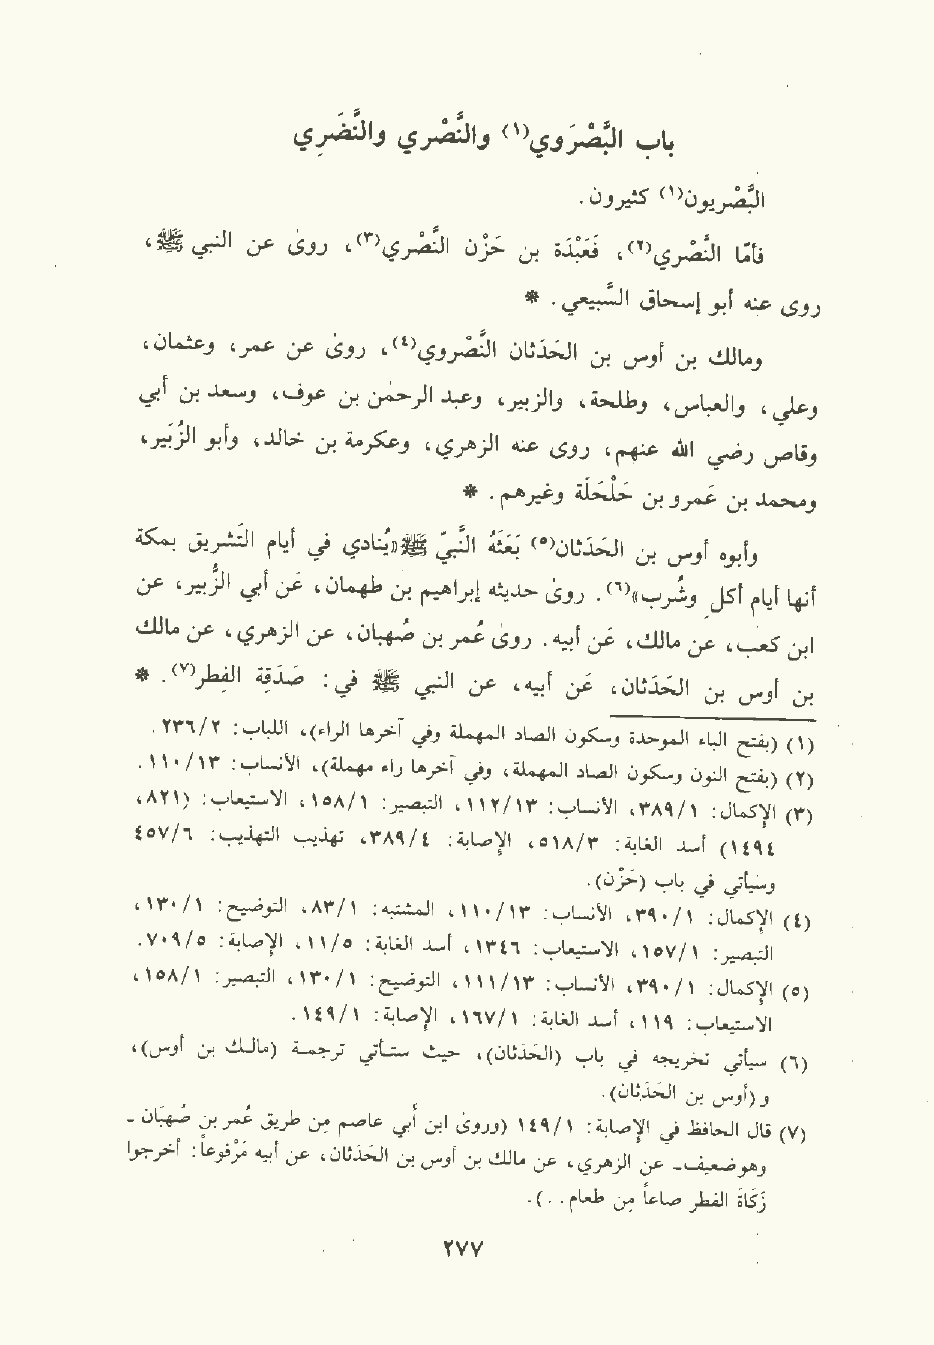 باب البَّصْرَوي(١) والنَّصْري والنَّضَرِي
البَّصْريون(١) كثيرون.
فأمّا النَّصْري(٢)، فَعَبْدَة بن حَزْن النَّصْري(٣)، روىٰ عن النبي ﷺ،
روى عنه أبو إسحاق السَّبيعي. *
ومالك بن أوس بن الحَدَثان النَّصْروي(٤)، روىٰ عن عمر، وعثمان،
وعلي، والعباس، وطلحة، والزبير، وعبد الرحمٰن بن عوف، وسعد بن أبي
وقاص رضي الله عنهم، روى عنه الزهري، وعكرمة بن خالد، وأبو الزُّبَير،
ومحمد بن عَمرو بن حَلْحَلَة وغيرهم. *
وأبوه أوس بن الحَدَثان(٥) بَعَثَهُ النَّبيّ ﷺ «يُنادي في أيام التَشريق بمكة
أنها أيام أكلٍ وشُرب»(٦). روىٰ حديثه إبراهيم بن طهمان، عَن أبي الزُّبير، عن
ابن كعب، عن مالك، عَن أبيه. روىٰ عُمر بن صُهبان، عن الزهري، عن مالك
بن أوس بن الحَدَثان، عَن أبيه، عن النبي ﷺ في: صَدَقِة الفِطر(٧). *
(١) (بفتح الباء الموحدة وسكون الصاد المهملة وفي آخرها الراء)، اللباب: ٢/٢٣٦.
(٢) (بفتح النون وسكون الصاد المهملة، وفي آخرها راء مهملة)، الأنساب: ١١٠/١٣.
(٣) الإكمال: ٣٨٩/١، الأنساب: ١١٢/١٣، التبصير: ١٥٨/١، الاستيعاب: (٨٢١،
١٤٩٤) أسد الغابة: ٥١٨/٣، الإصابة: ٣٨٩/٤، تهذيب التهذيب: ٤٥٧/٦
وسَيأتي في باب (حَزْن).
(٤) الإكمال: ٣٩٠/١، الأنساب: ١١٠/١٣، المشتبه: ٨٣/١، التوضيح: ١٣٠/١،
التبصير: ١٥٧/١، الاستيعاب: ١٣٤٦، أسد الغابة: ١١/٥، الإصابة: ٧٠٩/٥.
(٥) الإكمال: ٣٩٠/١، الأنساب: ١١١/١٣، التوضيح: ١٣٠/١، التبصير: ١٥٨/١،
الاستيعاب: ١١٩، أسد الغابة: ١٦٧/١، الإصابة: ١٤٩/١.
(٦) سيأتي تخريجه في باب (الحَدَثان)، حيث ستأتي ترجمة (مالك بن أوس)،
و(أوس بن الحَدَثان).
(٧) قال الحافظ في الإصابة: ١٤٩/١ (وروىٰ ابن أبي عاصم مِن طريق عُمر بن صُهَبان -
وهو ضعيف - عن الزهري، عن مالك بن أوس بن الحَدَثان، عن أبيه مَرْفوعاً: أخرجوا
زَكَاة الفطر صاعاً مِن طعام. . .).
٢٧٧